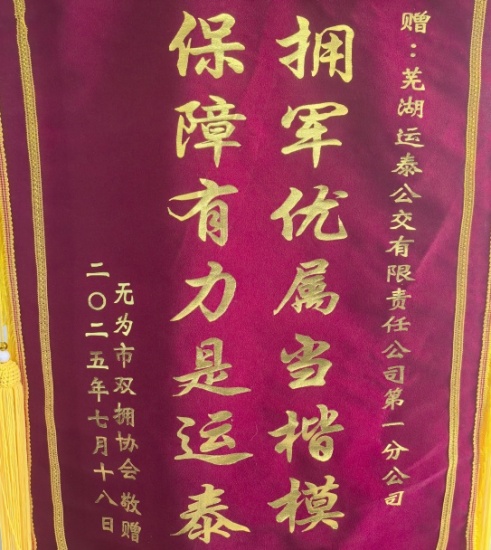 赠：芜湖运泰公交有限责任公司第一分公司
拥军优属当楷模
保障有力是运泰
无为市双拥协会敬赠
二〇二五年七月十八日